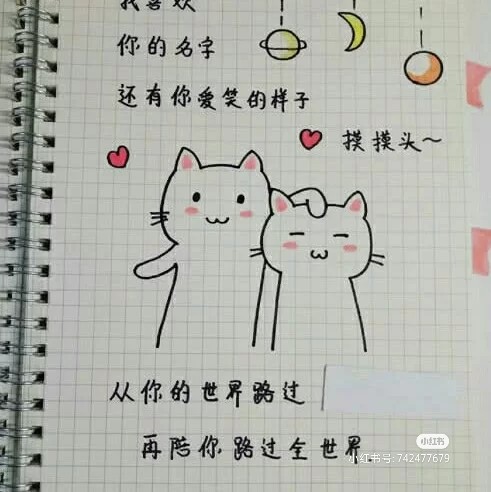 我喜欢
你的名字
还有你爱笑的样子
摸摸头～
从你的世界路过
再陪你路过全世界
小红书
小红书号:742477679